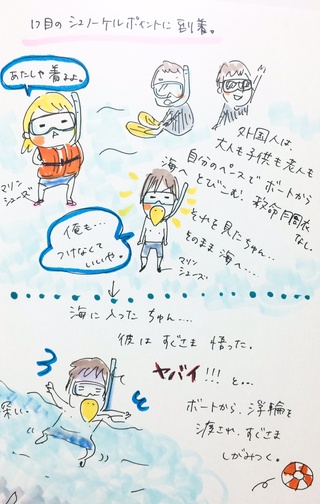 1つ目のシュノーケルポイントに到着。
あたしゃ着るよ。
マリン
シューズ
外国人は
大人も子供も老人も
自分のペースでボートから
海へとびこむ。救命胴衣
なし。
それを見たちゅん…
そのまま海へ…。
俺も…
つけなくて
いいや。
マリン
シューズ
海に入ったちゅん…
彼はすぐさま悟った。
ヤバイ!!!と…
深い…
ボートから、浮輪を
渡され、すぐさま
しがみつく。